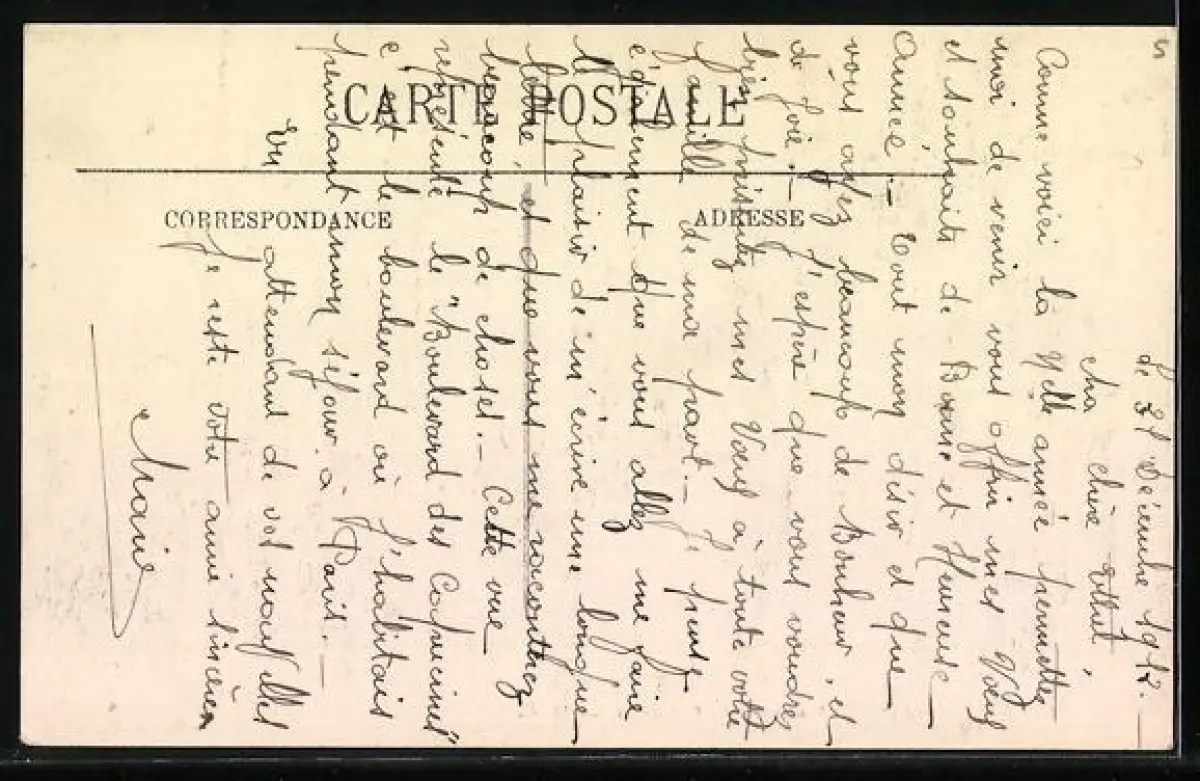 CARTE POSTALE
CORRESPONDANCE
ADRESSE
le 31 Décembre 1917.
Ma chère
Comme voici la Nelle année permettez
moi de venir vous offrir mes Vœux
et souhaits de Bonne et Heureuse
Année. Tout mon désir est que
vous ayez beaucoup de Bonheur, et
de joie. J'espère que vous voudrez
bien présenter mes Vœux à toute votre
famille de ma part. Je pense
également que vous allez me faire
le plaisir de m'écrire une longue
lettre, et que vous me raconterez
beaucoup de choses. Cette vue
représente le "Boulevard des Capucines"
c'est le boulevard où j'habitais
pendant mon séjour à Paris.
En attendant de vos nouvelles
Je reste votre amie sincère
Marie